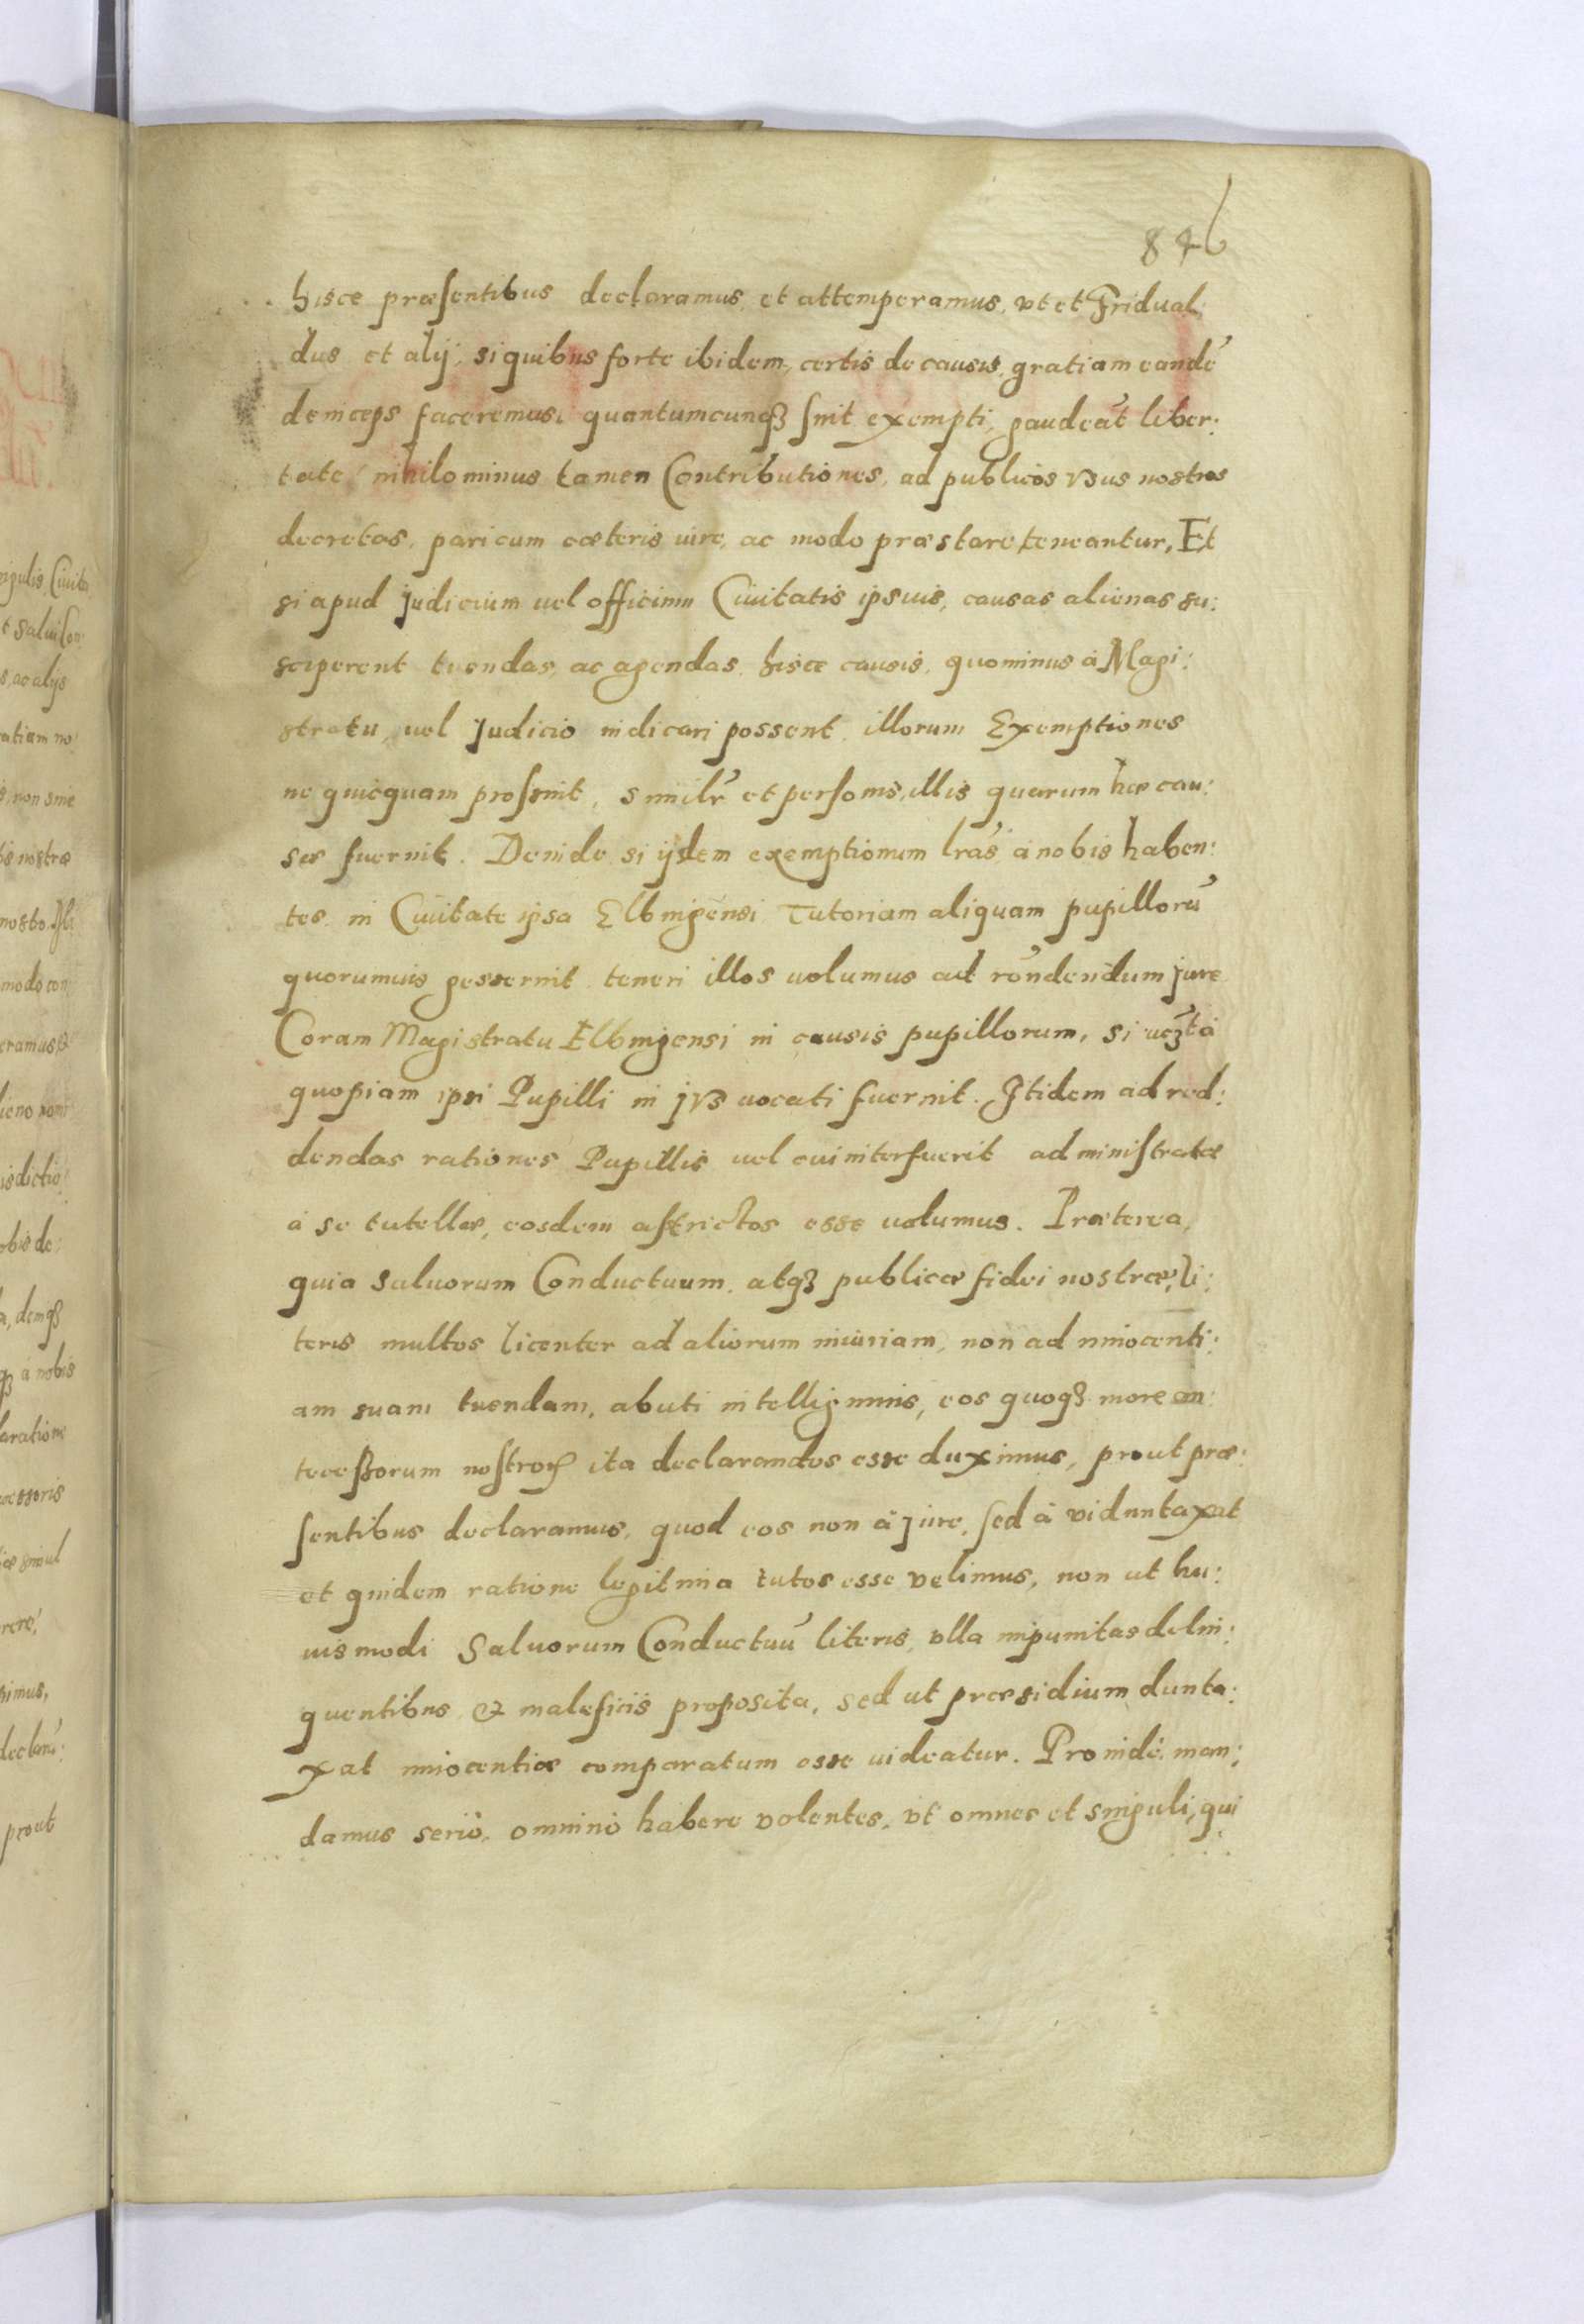 846
hisce præsentibus declaramus, et attemperamus, vt et Fridual:
dus et alij, si quibus forte ibidem, certis de causis, gratiam eandē
deinceps faceremus, quantumcunqꝫ sint exempti, gaudeāt liber:
tate, nihilominus tamen Contributiones, ad publicos vsus nostros
decretas, pari cum cæteris iure, ac modo præstare teneantur, Et
si apud judicium uel officium Ciuitatis ipsius, causas alienas su:
sciperent tuendas, ac agendas, hisce causis, quominus à Magi:
stratu, uel judicio iudicari possent, illorum Exemptiones
ne quicquam prosint, similr̃ et personis, illis quarum hæ cau:
sæ fuerint. Deinde si ijdem exemptionum lrãs à nobis haben:
tes, in Ciuitate ipsa Elbingensi, Tutoriam aliquam pupillorū
quorumuis gesserint, teneri illos uolumus ad rñdendum jure
Coram Magistratu Elbingensi in causis pupillorum, si uꝫt à
quopiam ipsi Pupilli in jus uocati fuerint. Itidem ad red:
dendas rationes Pupillis uel cui interfuerit administratæ
à se tutellæ, eosdem astrictos esse uolumus. Præterea,
quia saluorum Conductuum, atqꝫ publicæ fidei nostræ, li:
teris multos licenter ad aliorum iniuriam, non ad innocenti:
am suam tuendam, abuti intelligimus, eos quoqꝫ more an:
tecessorum nostroꝝ ita declarandos esse duximus, prout præ:
sentibus declaramus, quod eos non à jure, sed à vi duntaxat
et quidem ratione legitima tutos esse velimus, non ut hu:
iusmodi Saluorum Conductuū literis, vlla impunitas delin:
quentibus & maleficis proposita, sed ut præsidium dunta:
xat innocentiæ comparatum esse uideatur. Proindè man:
damus seriò, omnino habere volentes, vt omnes et singuli, qui